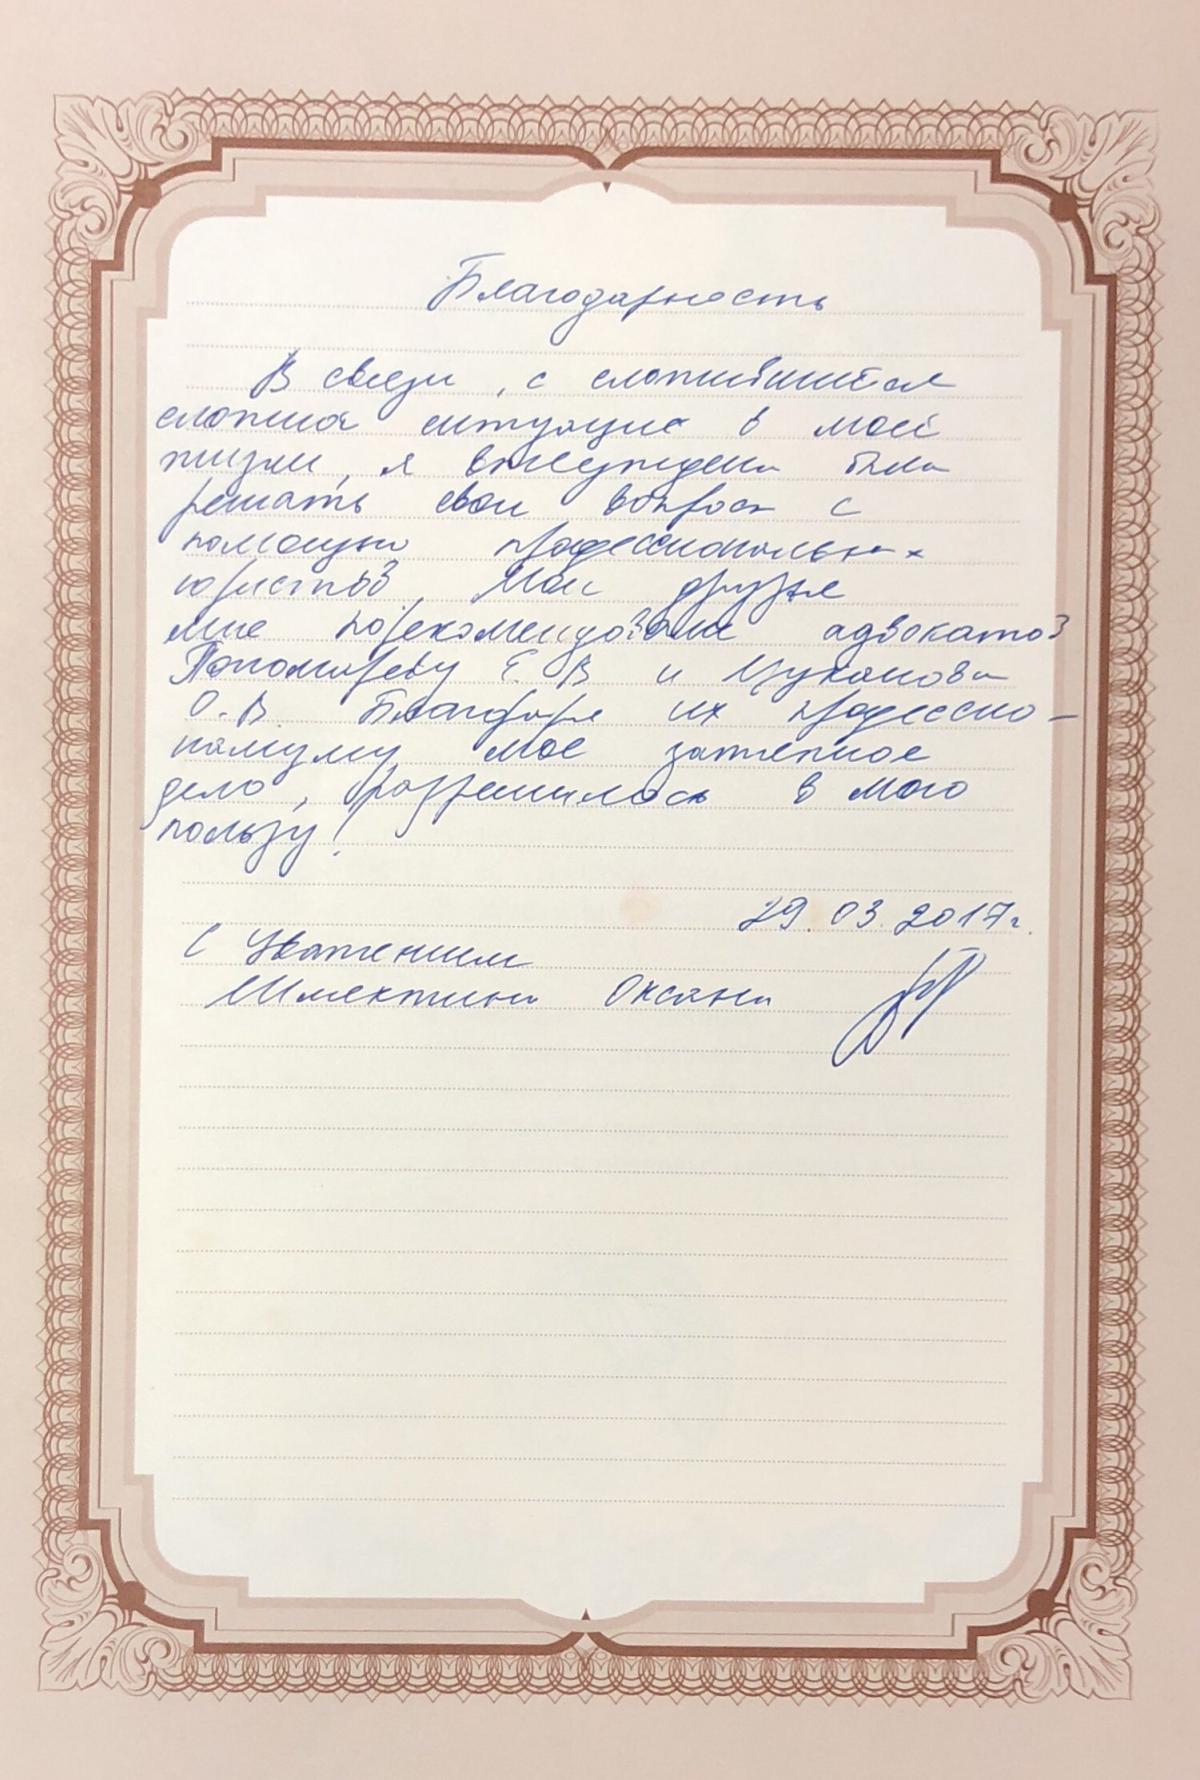 Благодарность
В связи, с сложившейся
сложной ситуацие в моей
жизни, я вынуждена была
решать свои вопросы с
помощью профессиональных
юристов. Мои друзья
мне порекомендовали адвокатов
Пономареву Е.В и Цуканова
О.В. Благодаря их профессио-
нализму мое затяжное
дело, разрешилось в мою
пользу!
29.03.2017г.
С Уважением
Оксана